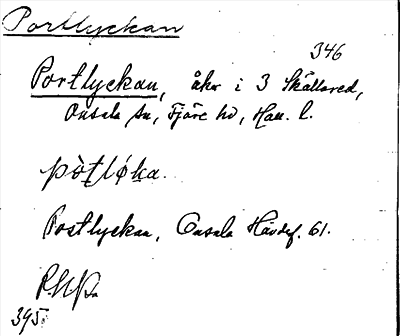 Portlyckan
346
Portlyckan, åker i 3 Skällared,
Onsala sn, Fjäre hd, Hall. l.
pòtløka.
Postlyckan, Onsala Hävdef. 61.
395